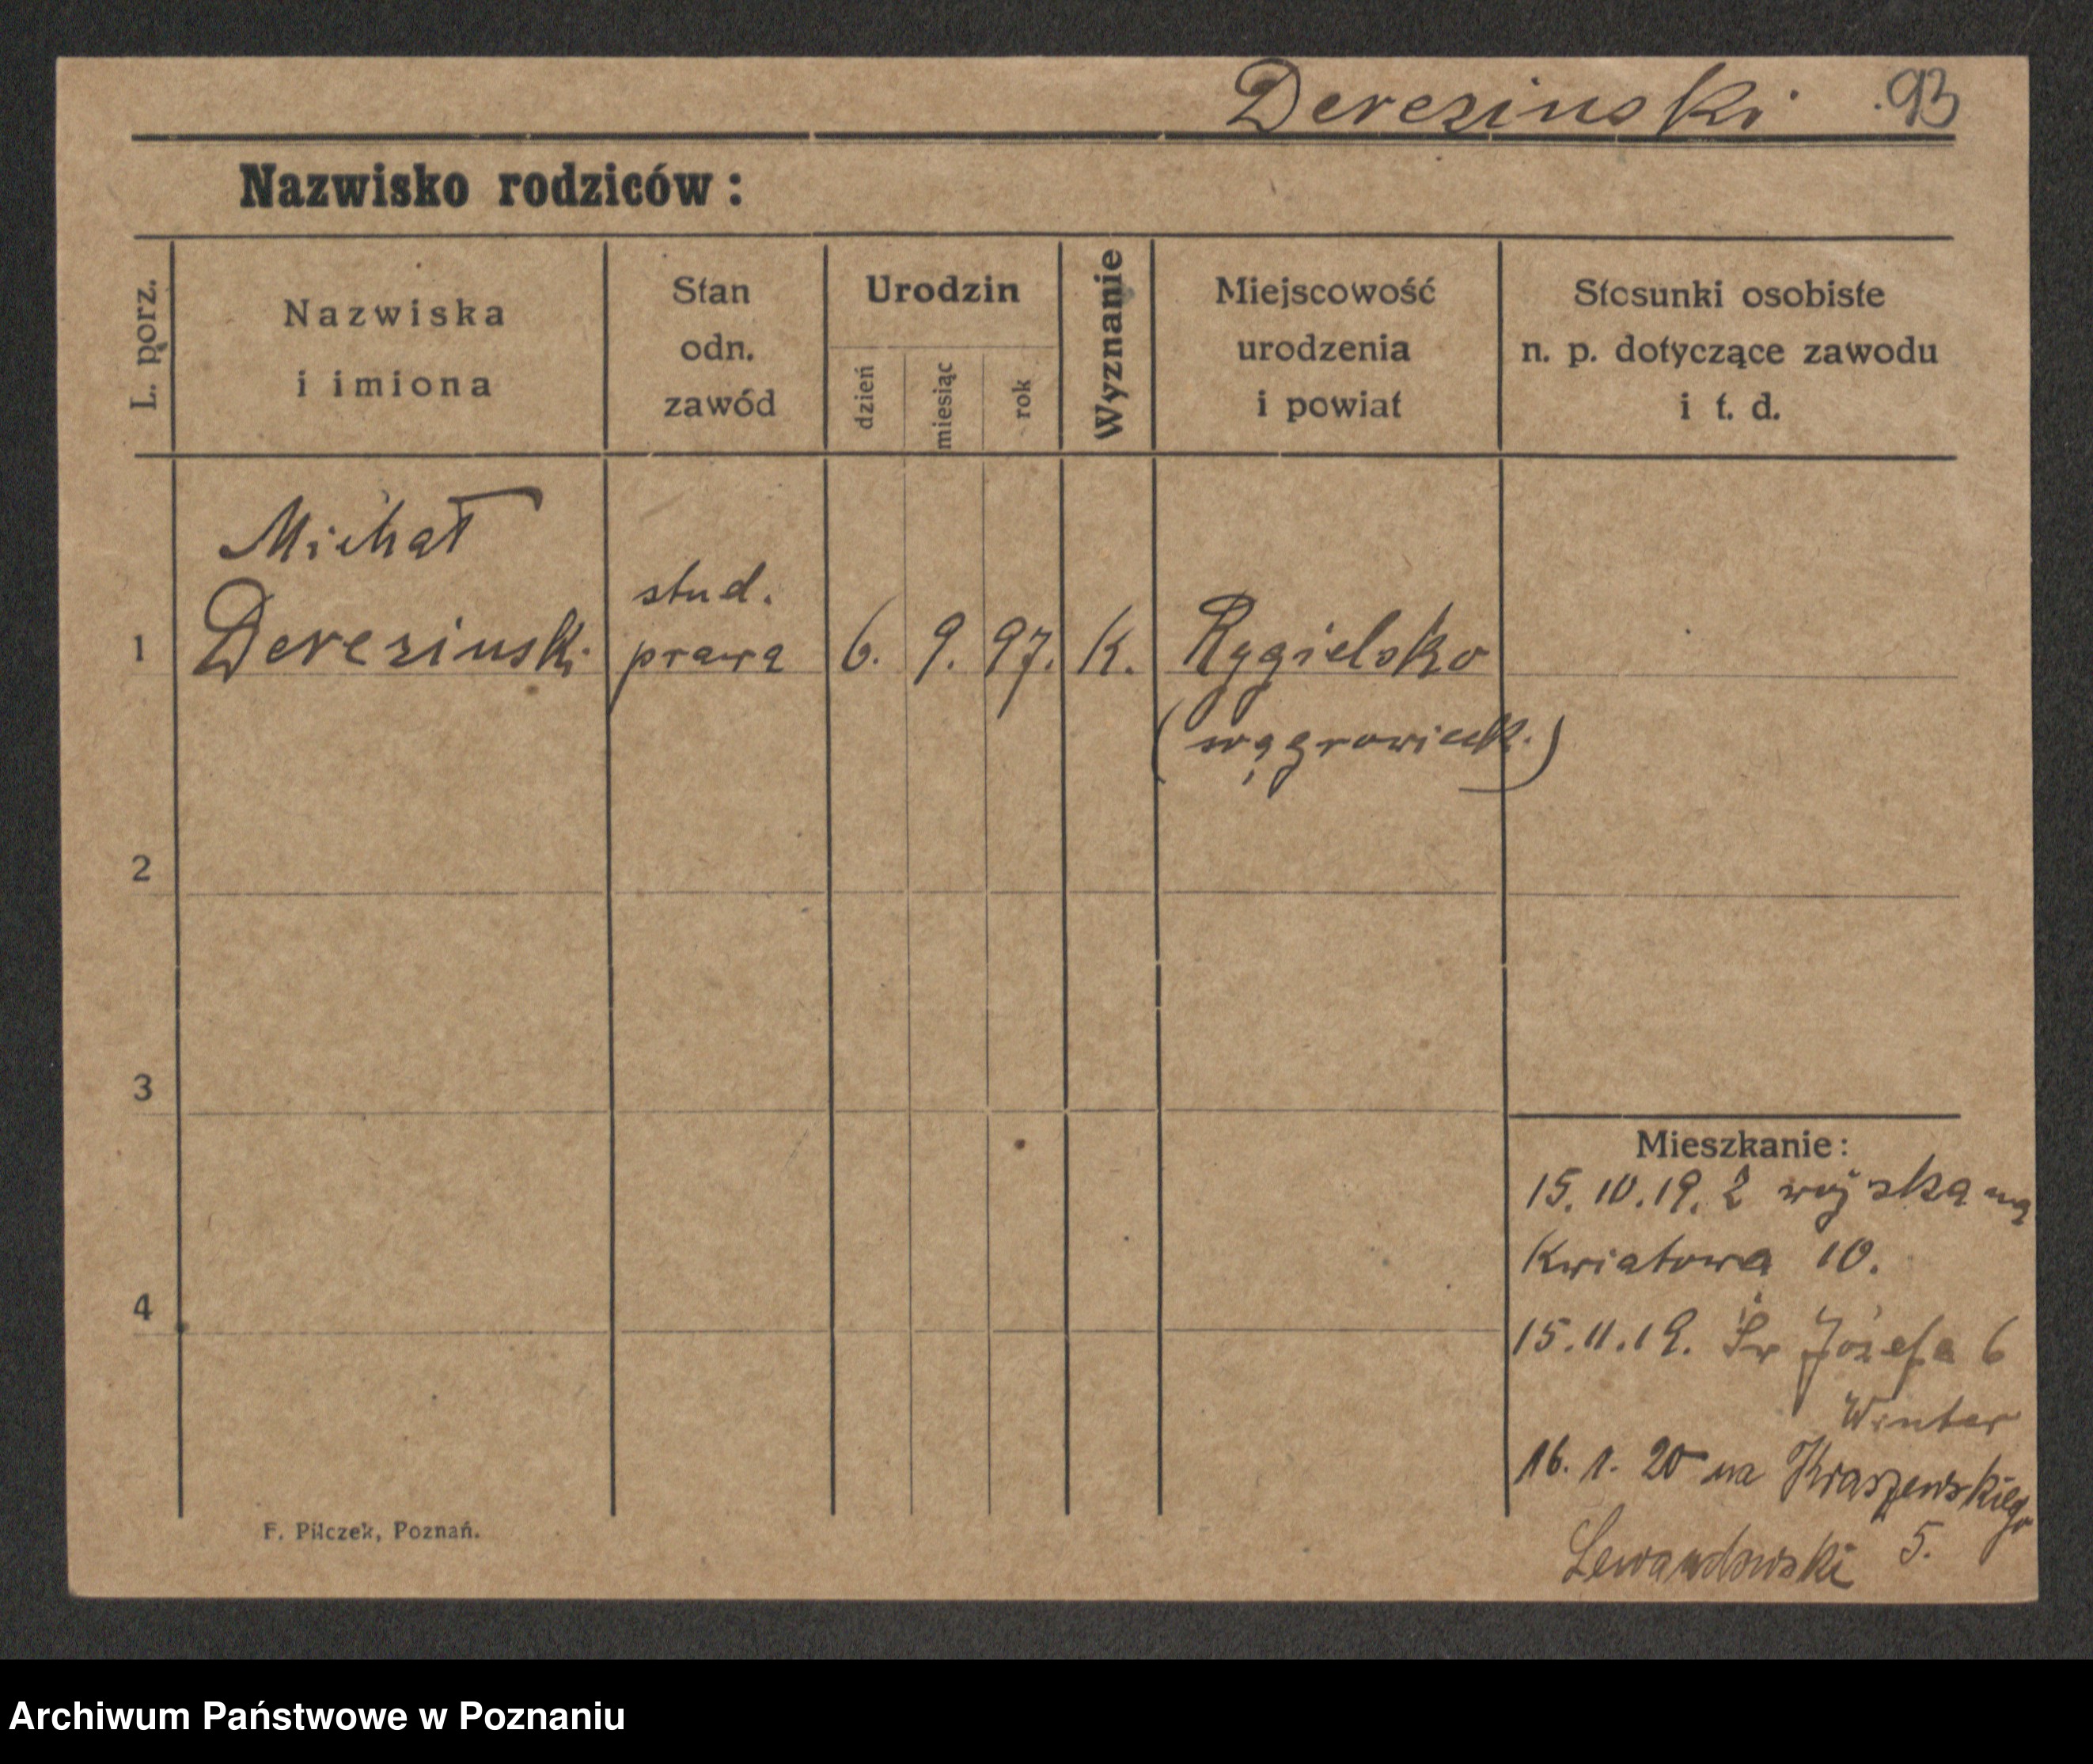 Derezinski 93
Nazwisko rodziców:
L. porz.
Nazwiska
i imiona
Stan
odn.
zawód
Urodzin
dzień
miesiąc
rok
Wyznanie
Miejscowość
urodzenia
i powiat
Stosunki osobiste
n. p. dotyczące zawodu
i t. d.
Michał
stud.
1 Derezinski prawa 6. 9. 97. K. Rygielsko
(wągrowieck.)
2
3
4
Mieszkanie:
15.10.19. z wojska na
Kwiatowa 10.
15.11.19. Św Józefa 6
Winter
16. 1. 20 na Kraszewskiego
Lewandowski 5.
F. Pilczek, Poznań.
Archiwum Państwowe w Poznaniu